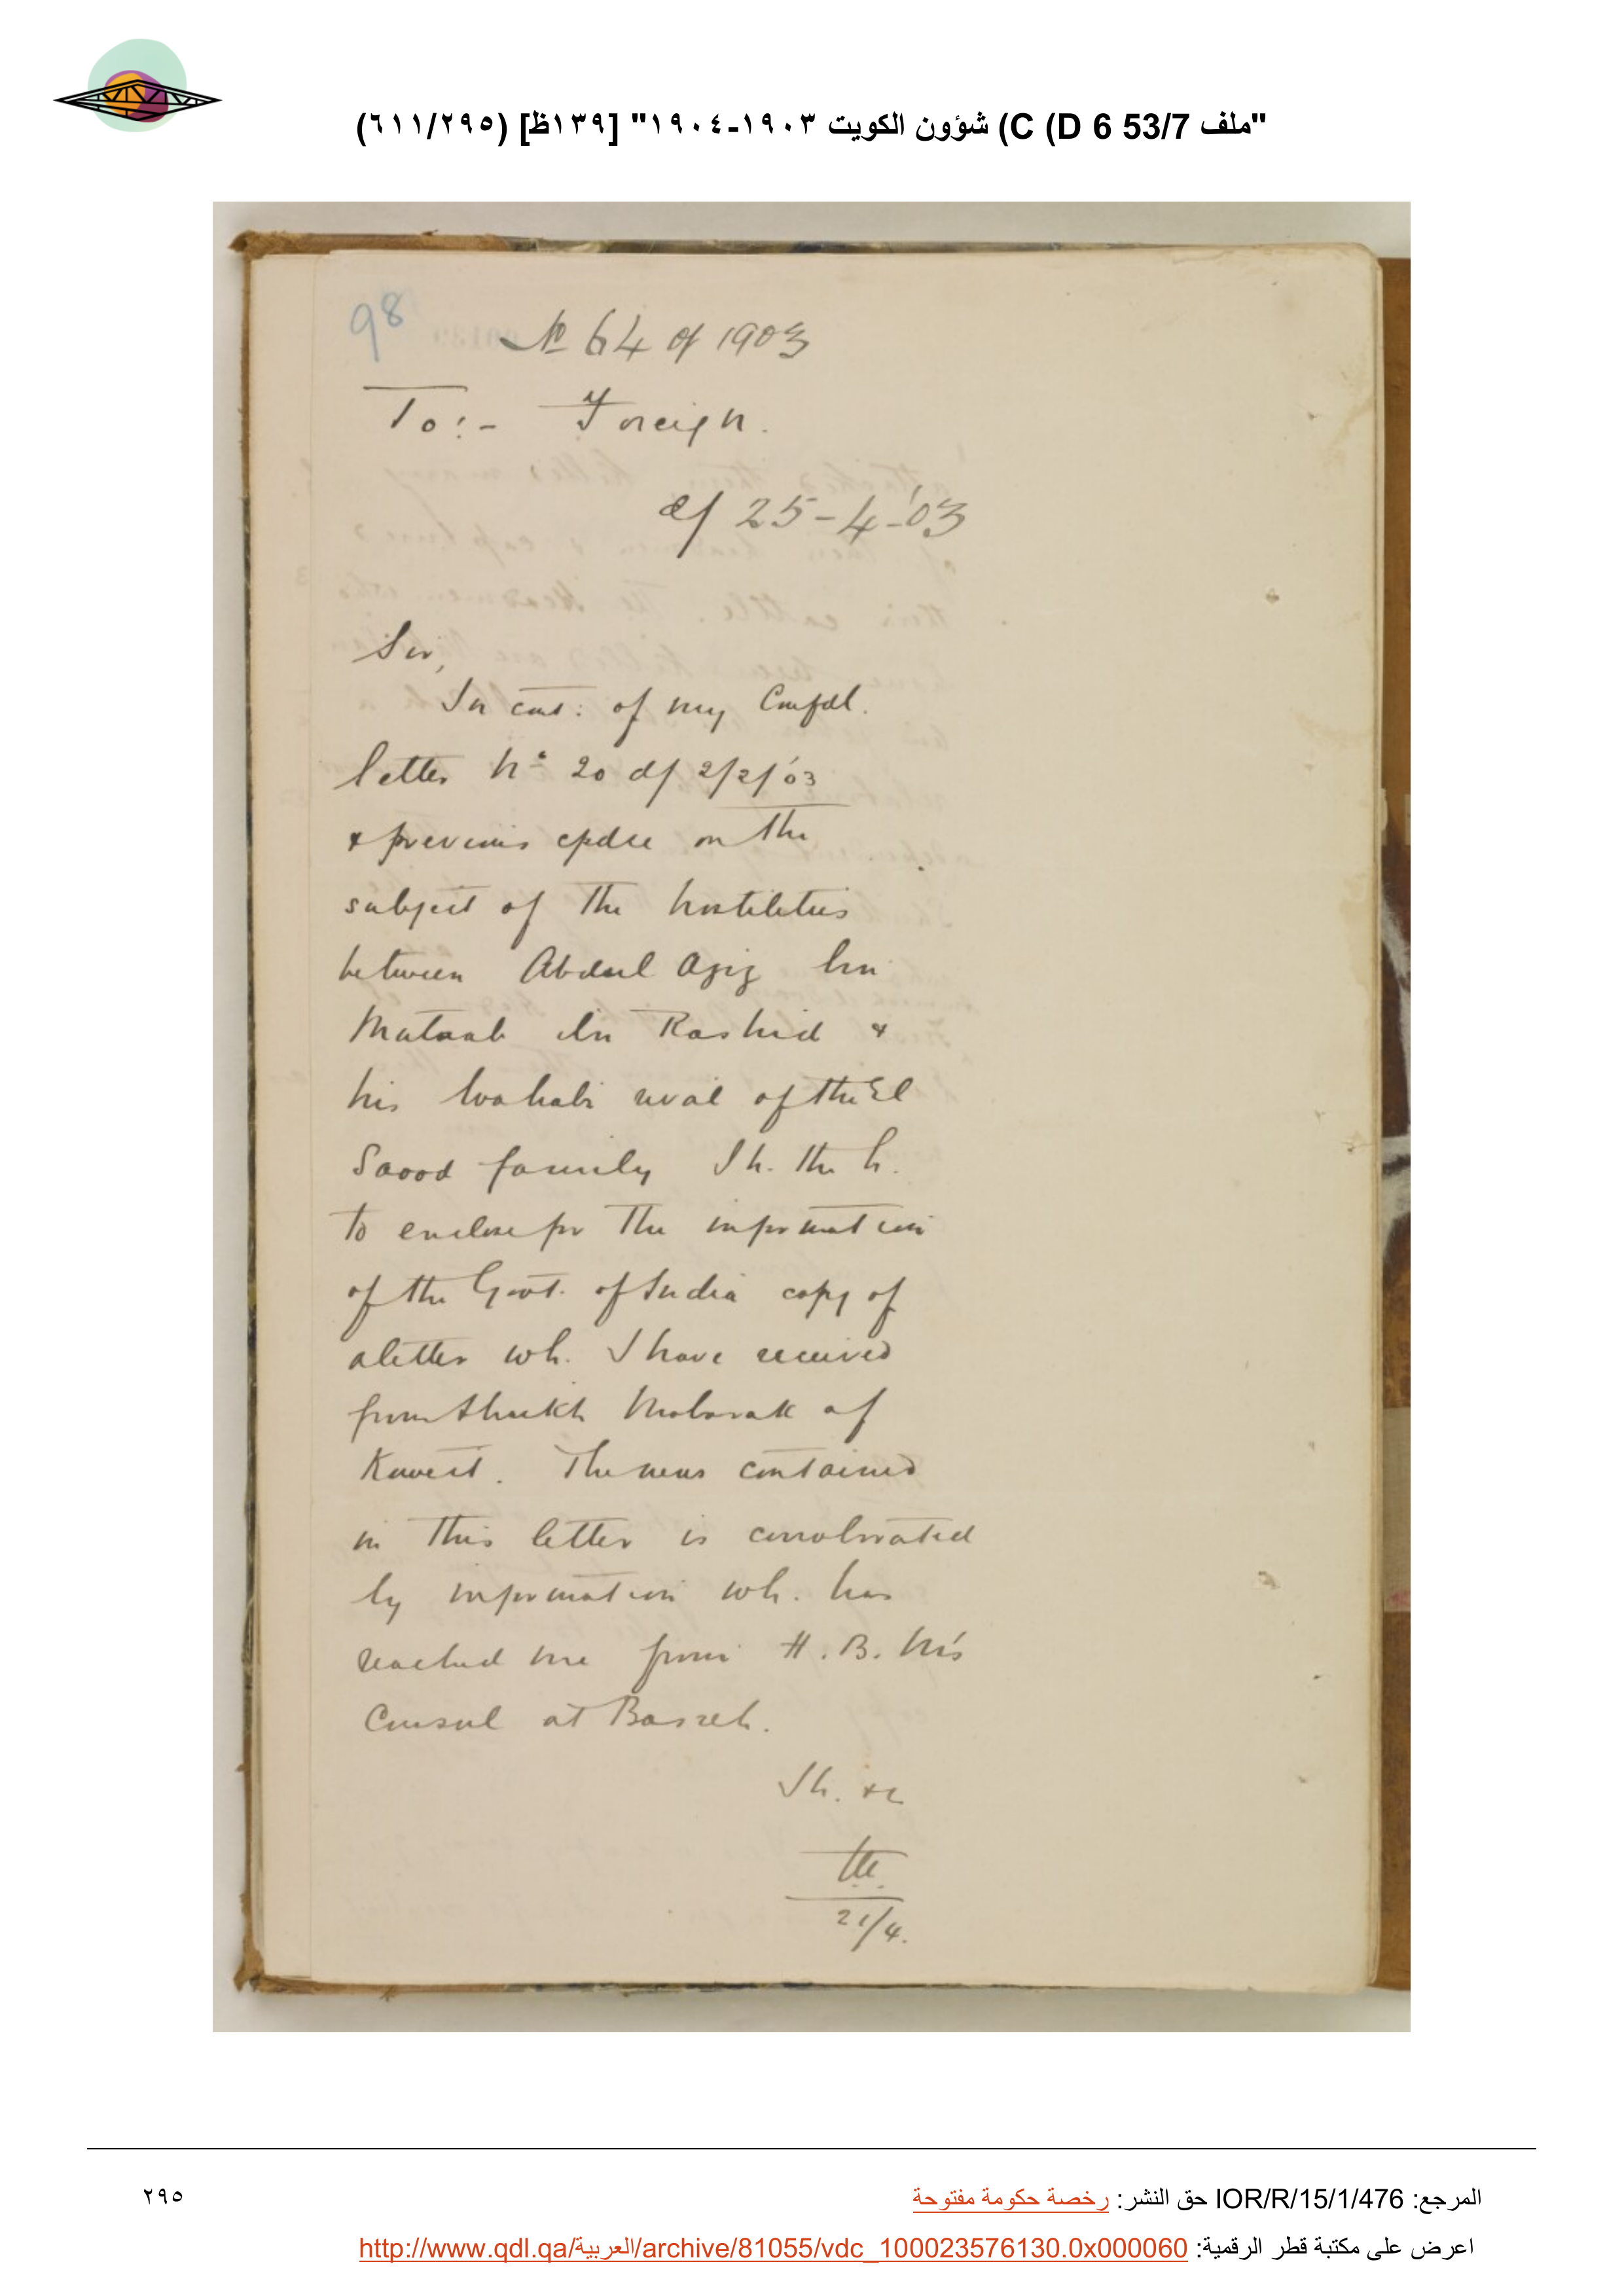 "ملف 53/7 D 6) C) شؤون الكويت ١٩٠٣-١٩٠٤" [١٣٩ظ] (٦١١/٢٩٥)
98
No 64 of 1903
To:- Foreign.
d/ 25-4-'03
Sir,
In cont: of my Confdl.
letter No 20 d/ 2/2/'03
& previous cpdce on the
subject of the hostilities
between Abdul Aziz bin
Mutaab ibn Rashid &
his Wahabi rival of the El
Saood family I h. the h.
to enclose for the information
of the Govt. of India copy of
a letter wh. I have received
from Sheikh Mobarak of
Koweit. The news contained
in this letter is corroborated
by information wh. has
reached me from H. B. M's
Consul at Basreh.
I h. &c
21/4.
المرجع: IOR/R/15/1/476 حق النشر: رخصة حكومة مفتوحة
٢٩٥
اعرض على مكتبة قطر الرقمية: http://www.qdl.qa/العربية/archive/81055/vdc_100023576130.0x000060